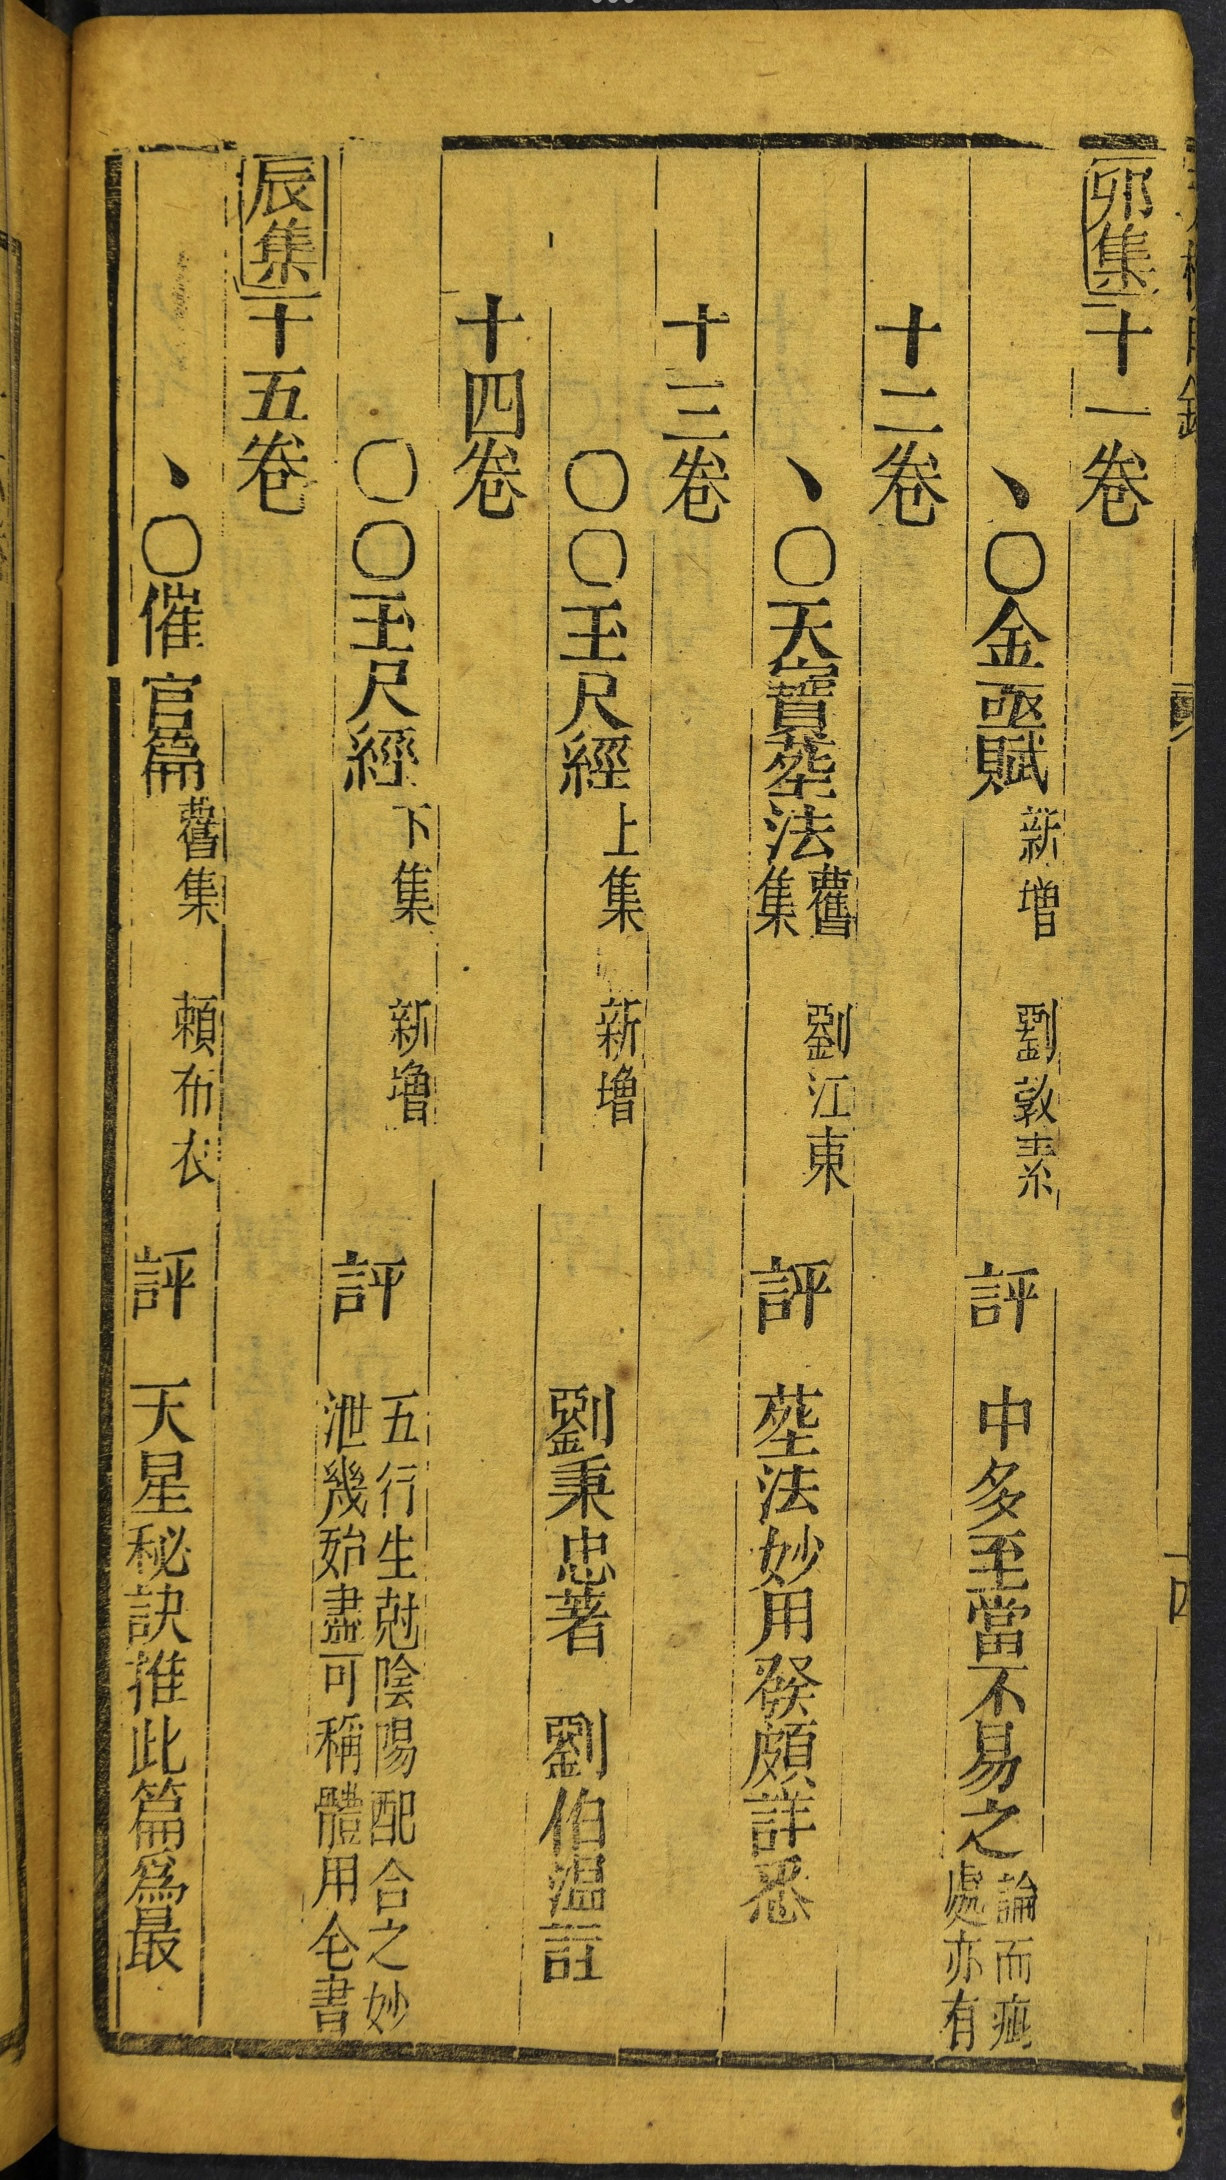 卯集 十一卷
、〇金函賦 新增 劉敦素 評 中多至當不易之論而疵處亦有
十二卷
、〇天寶塟法 舊集 劉江東 評 塟法妙用發頗詳悉
十三卷
〇〇玉尺經 上集 新增 劉秉忠著 劉伯温註
十四卷
〇〇玉尺經 下集 新增 評 五行生尅陰陽配合之妙泄幾始盡可稱體用仝書
辰集 十五卷
、〇催官篇 舊集 頼布衣 評 天星秘訣推此篇爲最